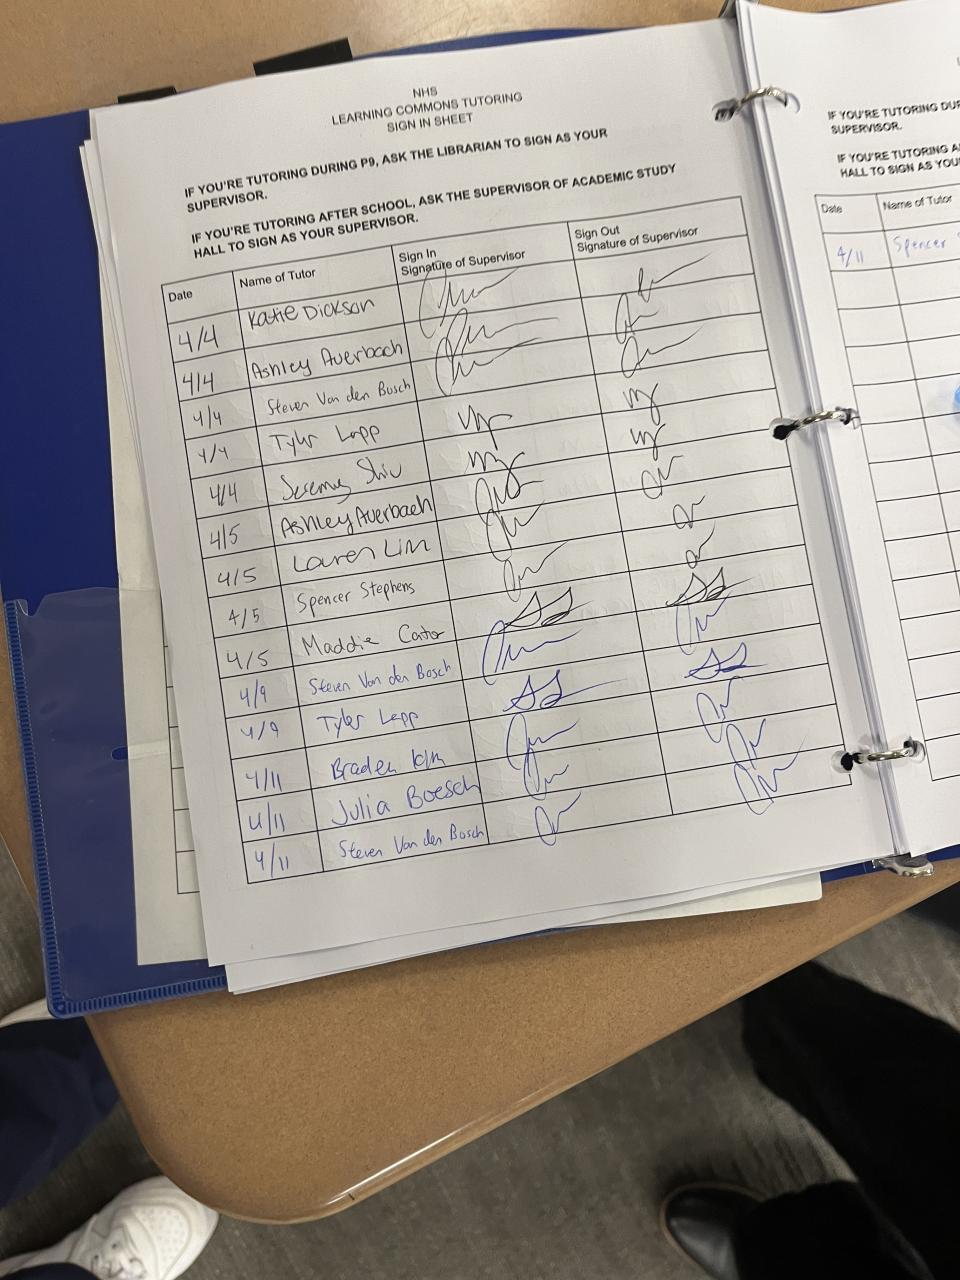 NHS
LEARNING COMMONS TUTORING
SIGN IN SHEET
IF YOU'RE TUTORING DURING P9, ASK THE LIBRARIAN TO SIGN AS YOUR
SUPERVISOR.
IF YOU'RE TUTORING AFTER SCHOOL, ASK THE SUPERVISOR OF ACADEMIC STUDY
HALL TO SIGN AS YOUR SUPERVISOR.
Date Name of Tutor Sign In Signature of Supervisor Sign Out Signature of Supervisor
4/4 Katie Dickson
4/4 Ashley Auerbach
4/4 Steven Van den Bosch
4/4 Tyler Lapp
4/4 Jeremy Shiu
4/5 Ashley Auerbach
4/5 Lauren Lim
4/5 Spencer Stephens
4/5 Maddie
4/9 Steven Van den Bosch
4/9 Tyler Lapp
4/11 Braden
4/11 Julia Boesch
4/11 Steven Van den Bosch
IF YOU'RE TUTORING
SUPERVISOR.
IF YOU'RE TUTORING
HALL TO SIGN AS
Date Name of Tutor
4/11 Spencer